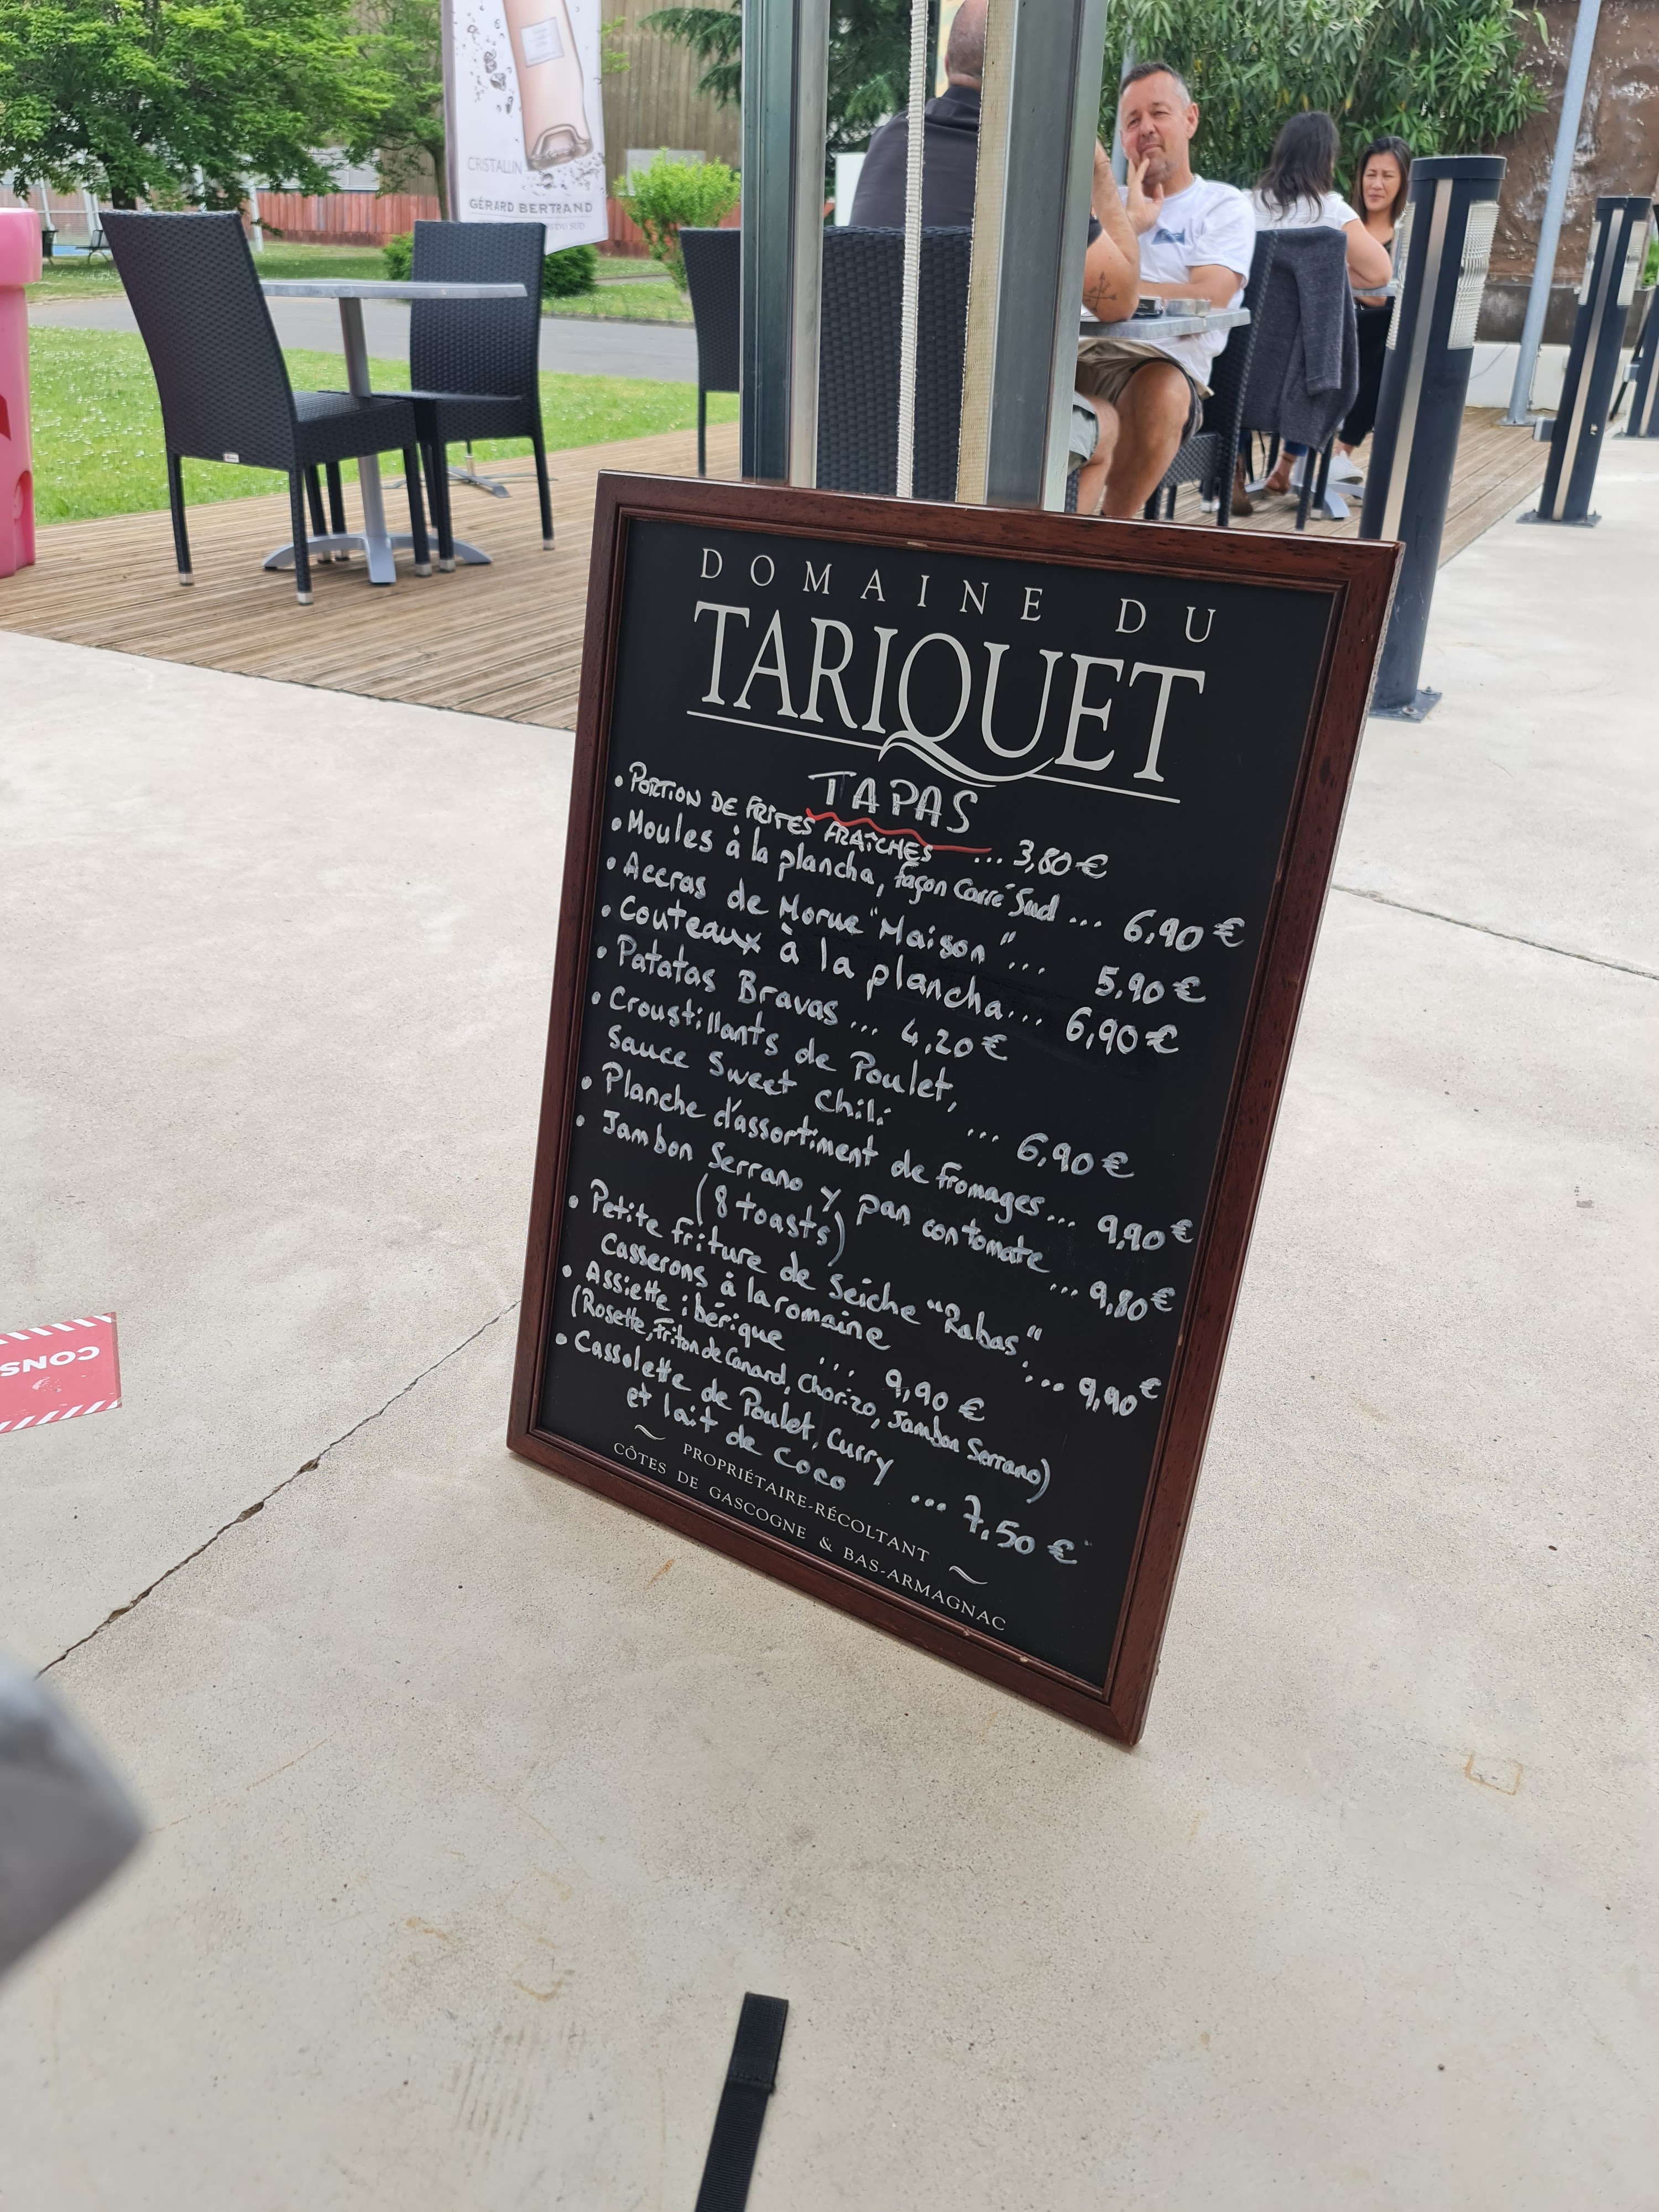 CRISTALLIN
GÉRARD BERTRAND
DU SUD
DOMAINE DU
TARIQUET
TAPAS
• PORTION DE FRITES FRAÎCHES ... 3,80 €
• Moules à la plancha, façon Carré Sud ... 6,90 €
• Accras de Morue "Maison" ... 5,90 €
• Couteaux à la plancha... 6,90 €
• Patatas Bravas ... 4,20 €
• Croustillants de Poulet,
Sauce Sweet Chili ... 6,90 €
• Planche d'assortiment de fromages... 9,90 €
• Jambon Serrano y pan con tomate ... 9,80 €
(8 toasts)
• Petite friture de Seiche "Rabas"
Casserons à la romaine ... 9,90 €
• Assiette ibérique ... 9,90 €
(Rosette, Friton de Canard, Chorizo, Jambon Serrano)
• Cassolette de Poulet, Curry
et lait de Coco ... 7,50 €
PROPRIÉTAIRE-RÉCOLTANT
CÔTES DE GASCOGNE & BAS-ARMAGNAC
CONS